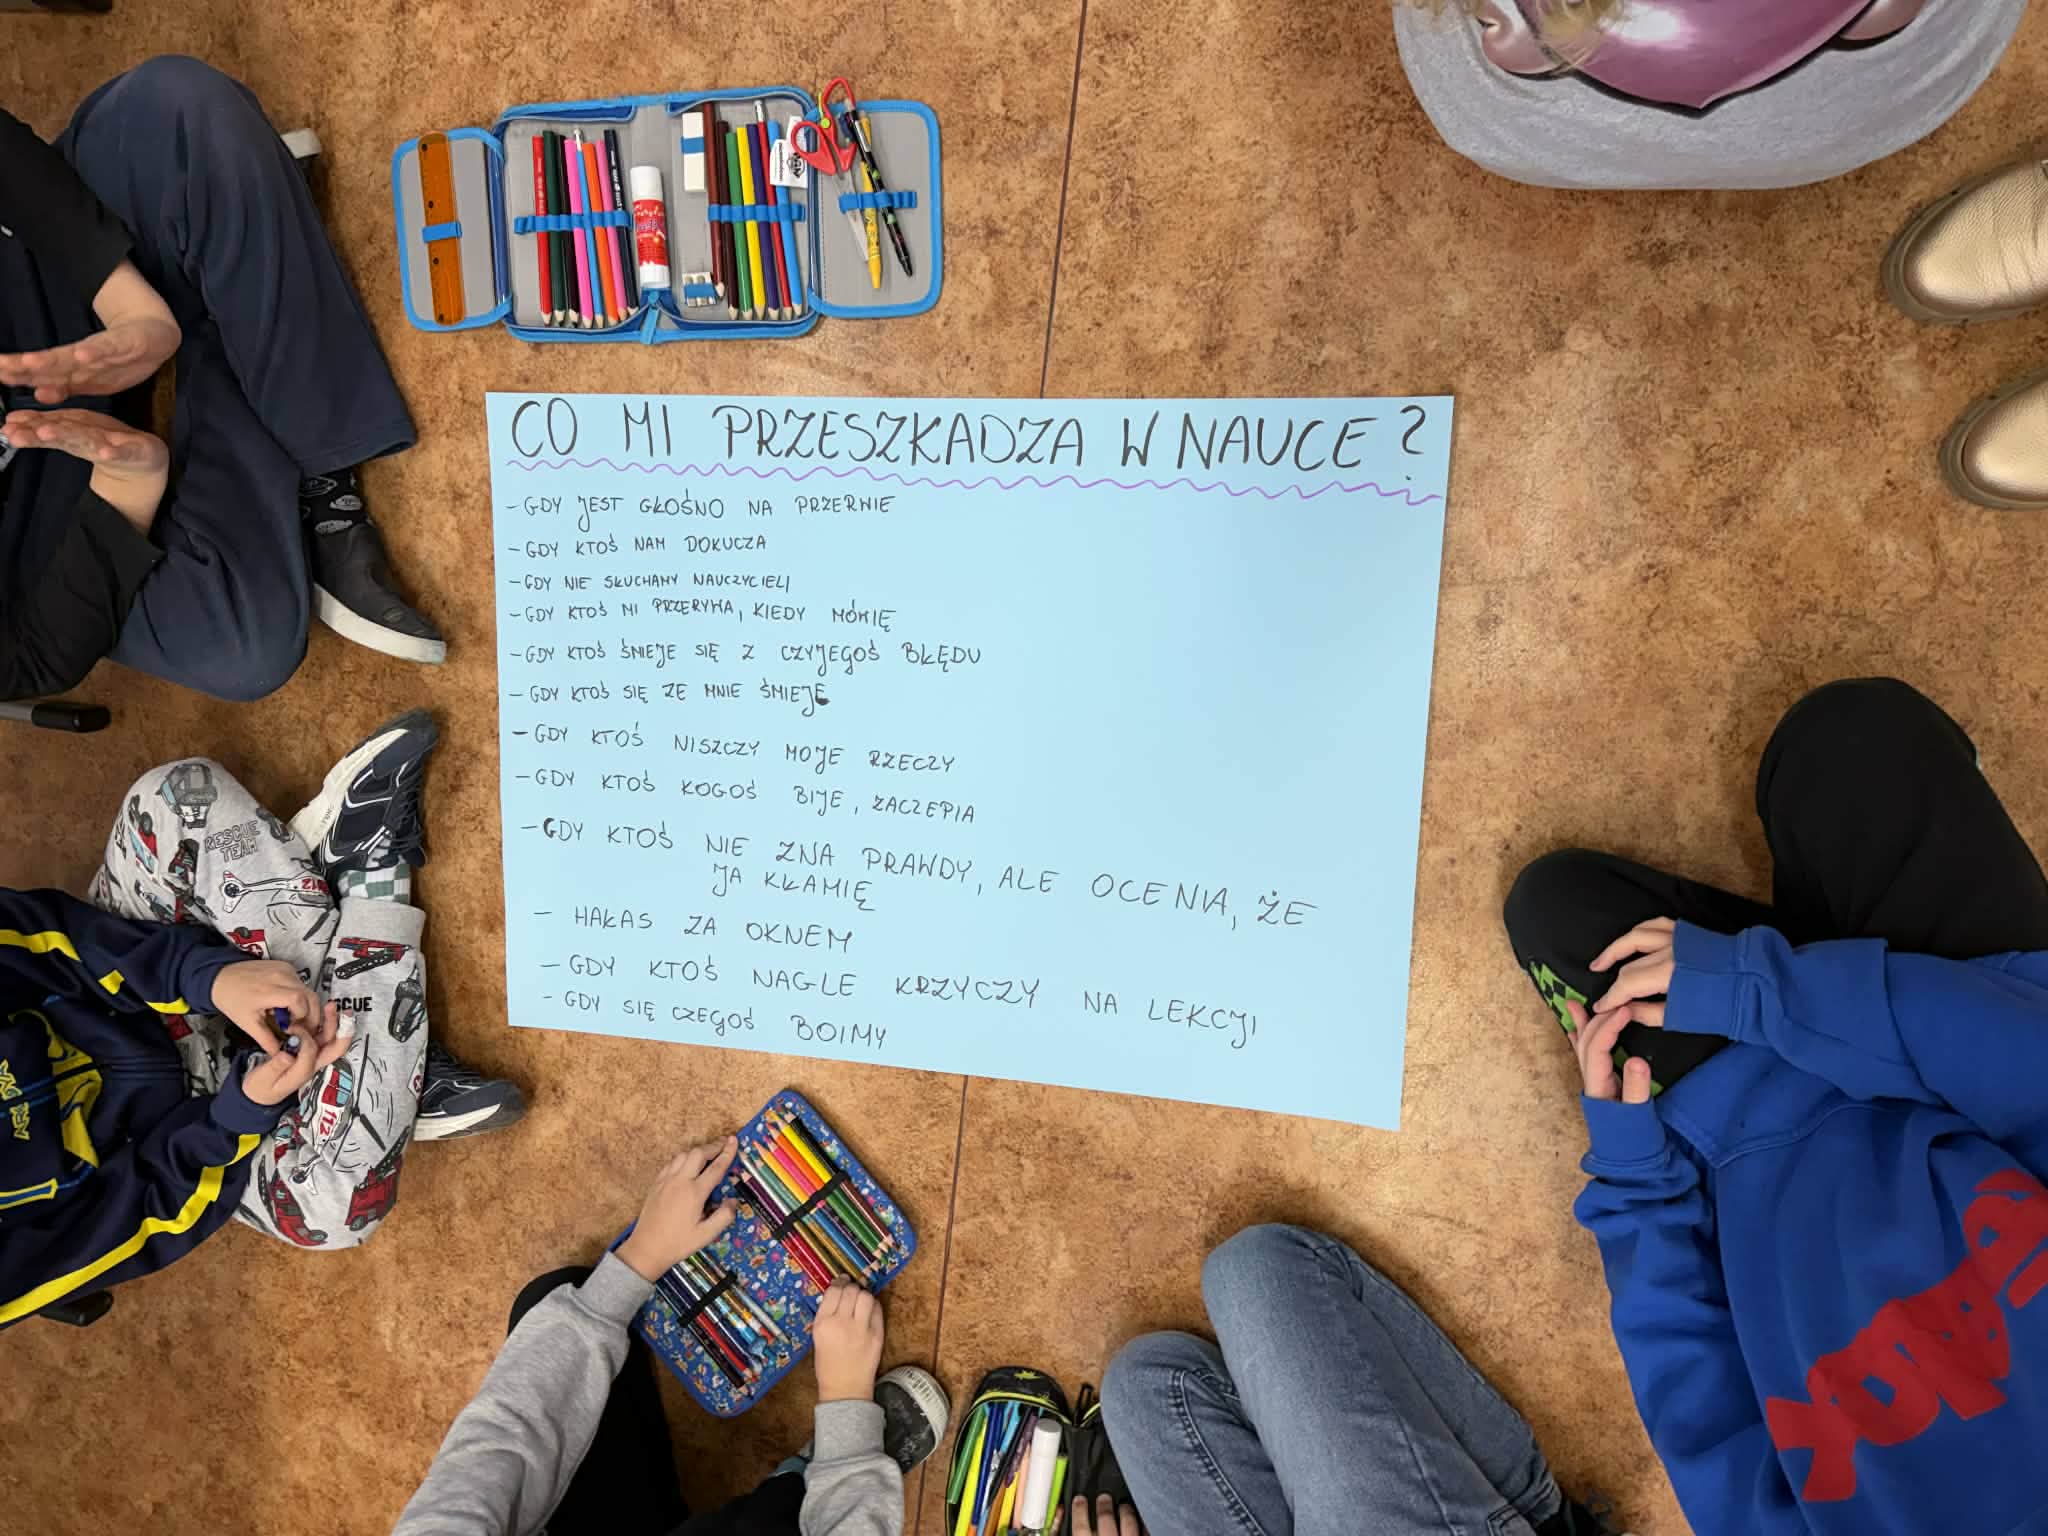 CO MI PRZESZKADZA W NAUCE?
- GDY JEST GŁOŚNO NA PRZERWIE
- GDY KTOŚ NAM DOKUCZA
- GDY NIE SŁUCHAMY NAUCZYCIELI
- GDY KTOŚ MI PRZERYWA, KIEDY MÓWIĘ
- GDY KTOŚ ŚMIEJE SIĘ Z CZYJEGOŚ BŁĘDU
- GDY KTOŚ SIĘ ZE MNIE ŚMIEJE
- GDY KTOŚ NISZCZY MOJE RZECZY
- GDY KTOŚ KOGOŚ BIJE, ZACZEPIA
- GDY KTOŚ NIE ZNA PRAWDY, ALE OCENIA, ŻE
JA KŁAMIĘ
- HAŁAS ZA OKNEM
- GDY KTOŚ NAGLE KRZYCZY NA LEKCJI
- GDY SIĘ CZEGOŚ BOIMY
RESCUE
TEAM
112
RESCUE
112